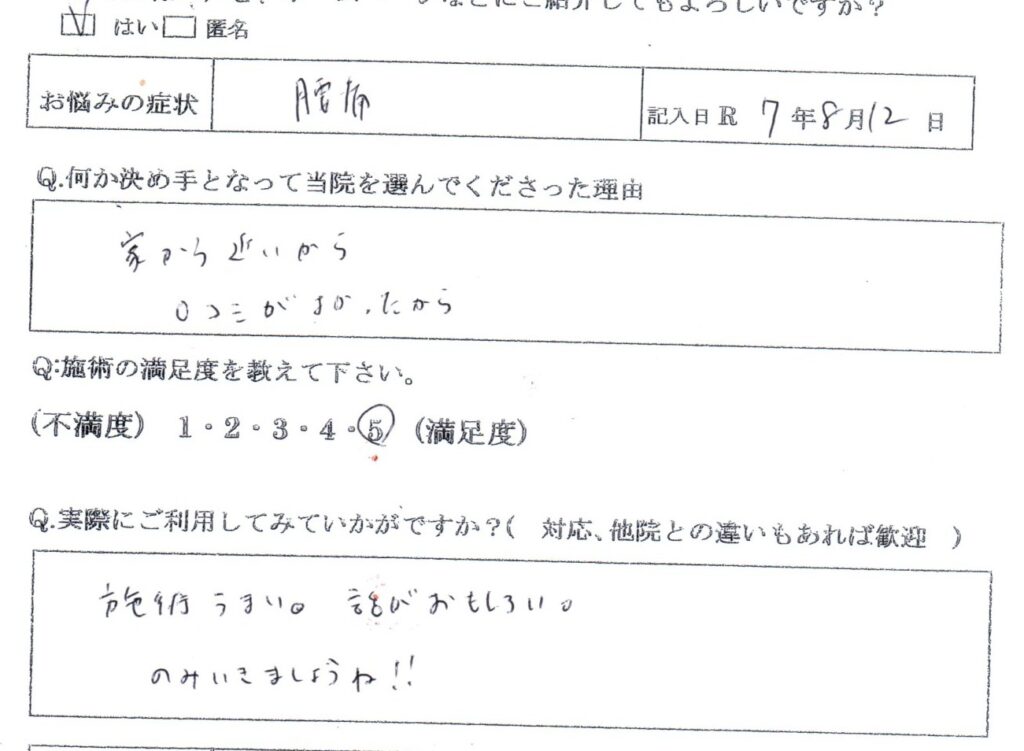 ご紹介してもよろしいですか?
はい 匿名
お悩みの症状 腰痛 記入日R 7年8月12日
Q.何か決め手となって当院を選んでくださった理由
家から近いから
口コミがよかったから
Q:施術の満足度を教えて下さい。
(不満度) 1・2・3・4・5 (満足度)
Q.実際にご利用してみていかがですか?( 対応、他院との違いもあれば歓迎 )
施術うまい。 話がおもしろい。
のみいきましょうね!!